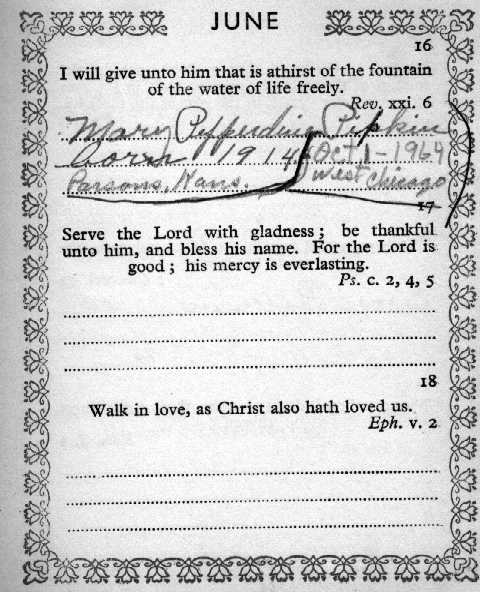 JUNE
16
I will give unto him that is athirst of the fountain
of the water of life freely.
Rev. xxi. 6
Mary Pipkin
born 1914 Oct 1-1964
Parsons, Kans. West Chicago
17
Serve the Lord with gladness ; be thankful
unto him, and bless his name. For the Lord is
good ; his mercy is everlasting.
Ps. c. 2, 4, 5
18
Walk in love, as Christ also hath loved us.
Eph. v. 2